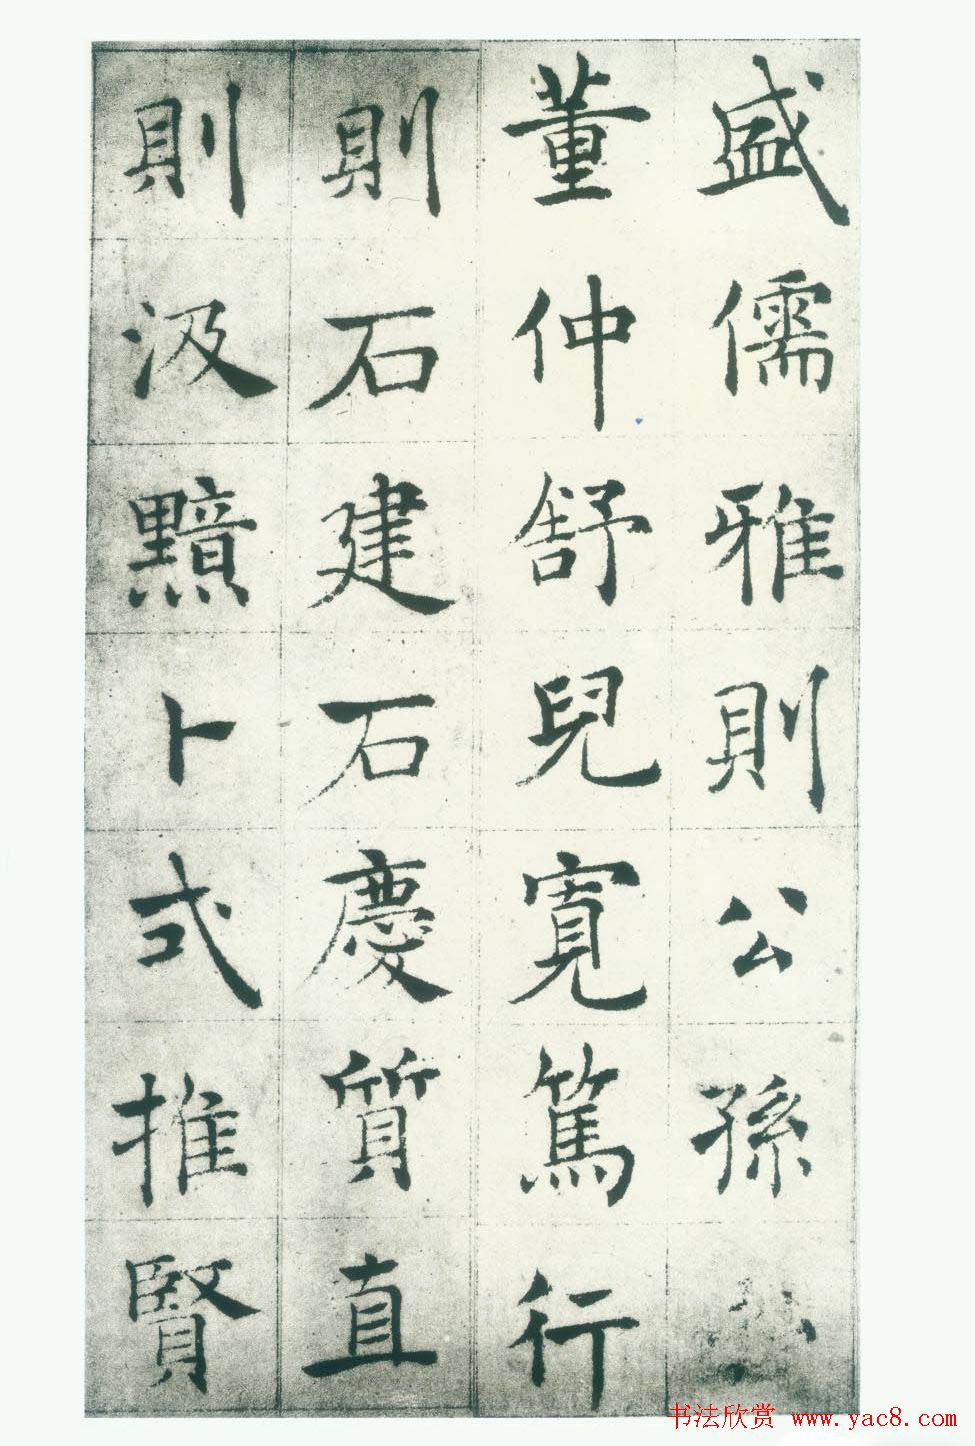 盛儒雅則公孫
董仲舒兒寬篤行
則石建石慶質直
則汲黯卜式推賢
书法欣赏 www.yac8.com